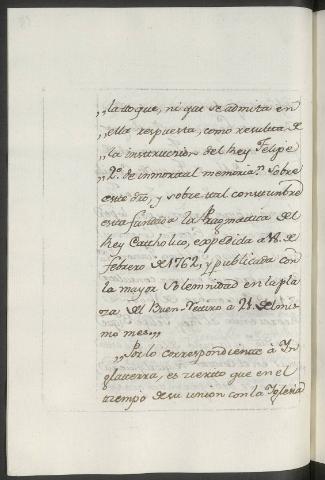 „la toque, ni que se admita en
„ella respuesta, como resulta de
„la instruccion del Rey Felipe
„2º. de inmortal memoria.” Sobre
este dro, y sobre tal constumbre
esta fundada la Pragmatica del
Rey Catholico, expedida a 18. de
febrero de 1762, y publicada con
la mayor Solemnidad en la pla
za del Buen-Retiro a 21. del mis
mo mes„
„Por lo correspondiente à In
glaterra, es cierto que en el
tiempo de su union con la Iglesia